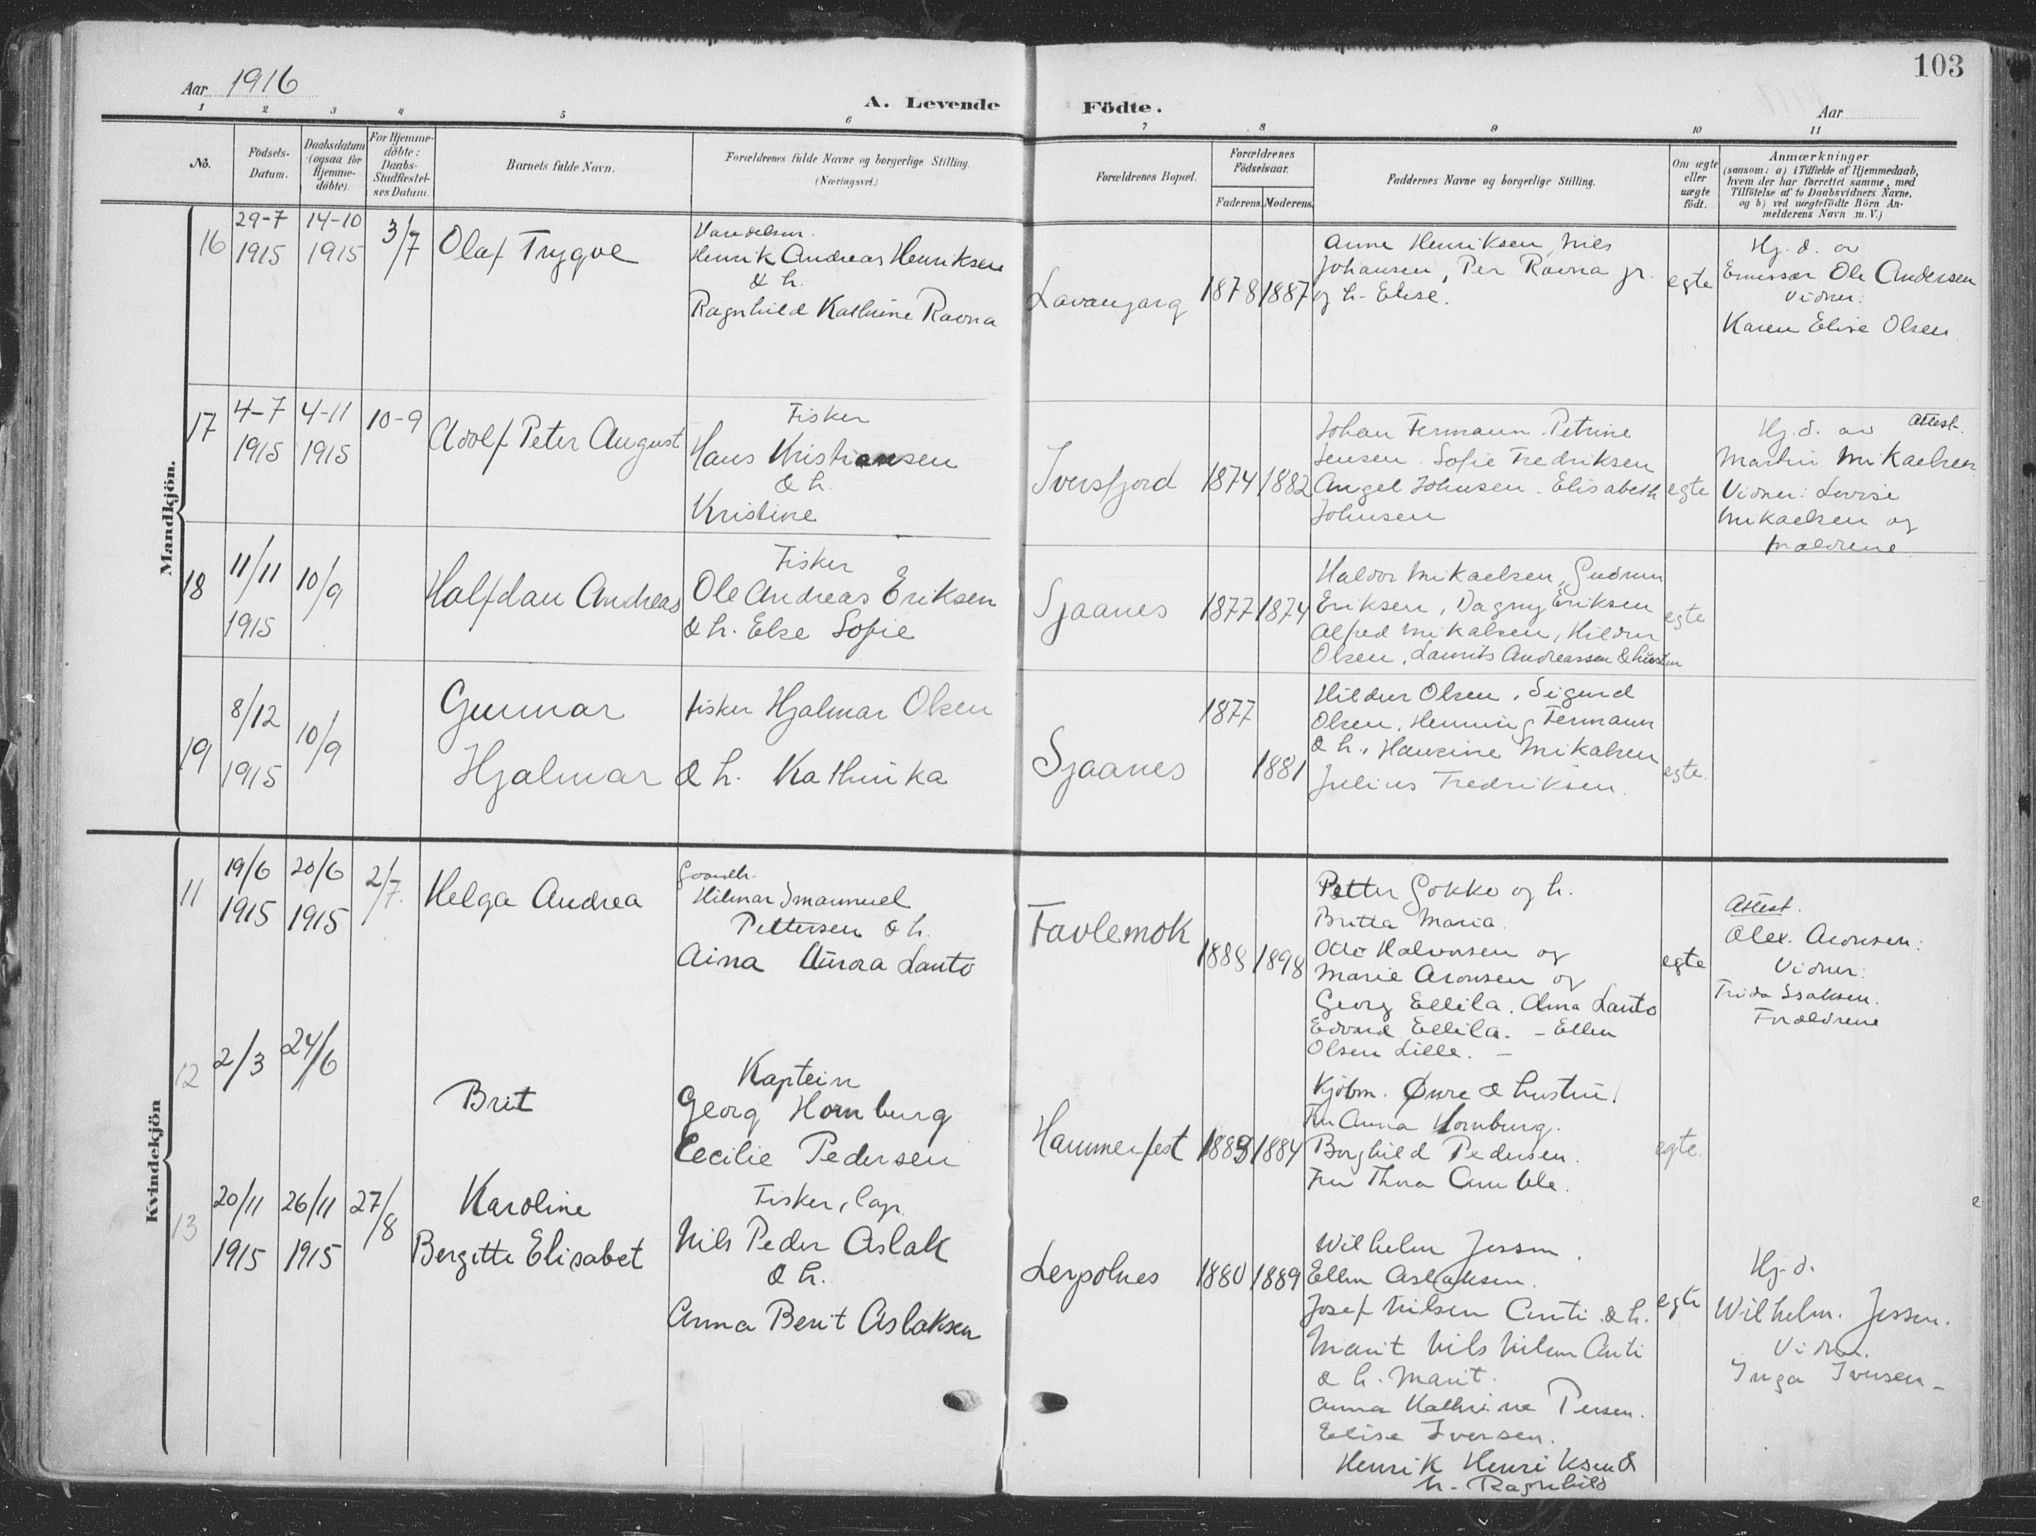 103
Aar 1916
A. Levende Födte.
Aar
1 2 3 4 5 6 7 8 9 10 11
No.
Födsels-
Datum.
Daabsdatum
(ogsaa for
Hjemme-
döbte).
For Hjemme-
döbte:
Daabs-
Stadfæstel-
ses Datum.
Barnets fulde Navn.
Forældrenes fulde Navne og borgerlige Stilling.
(Næringsvei.)
Forældrenes Bopæl.
Forældrenes
Födselsaar.
Faderens. Moderens.
Faddernes Navne og borgerlige Stilling.
Om ægte
eller
uægte
födt.
Anmærkninger
(saasom: a) i Tilfælde af Hjemmedaab,
hvem der har forrettet samme, med
Tilföielse af to Daabsvidners Navne,
og b) ved uægtefödte Börn An-
melderens Navn m.V.)
Mandkjön.
16
29-7
1915
14-10
1915
3/7
Olaf Trygve
Henrik Andreas Henriksen
& h.
Ragnhild Kathrine Ravna
Lavangarg
1878 1887
Anne Henriksen, Nils
Johansen, Per Ravna jr.
og h. Elise.
egte
Hj. d. av
Emissær Ole Andersen
Vidner:
Karen Elise Olsen
17
4-7
1915
4-11
1915
10-9
Adolf Peter August
Fisker
Hans Kristiansen
& h.
Kristine
Iversfjord
1874 1882
Johan Fermann. Petrine
Jensen. Sofie Fredriksen
Angel Johnsen. Elisabeth
Johnsen
egte
Hj. d. av Attest.
Martin Mikaelsen
Vidner: Lovise
Mikaelsen og
forældrene.
18
11/11
1915
10/9
Halfdan Andreas
Fisker
Ole Andreas Eriksen
& h. Else Sofie
Sjaanes
1877 1874
Haldor Mikaelsen, Gudrun
Eriksen, Dagny Eriksen
Alfred Mikalsen, Hildur
Olsen, Laurits Andreassen & hustru
egte
19
8/12
1915
10/9
Gunnar
Hjalmar
Fisker Hjalmar Olsen
& h. Kathinka
Sjaanes
1877
1881
Hildur Olsen, Sigurd
Olsen, Henning Fermann
& h., Hansine Mikalsen
Julius Fredriksen.
egte.
Kvindekjön
11
19/6
1915
20/6
1915
2/7.
Helga Andrea
Gaardb.
Hilmar Imanuel
Pettersen & h.
Aina Aurora Lanto
Favlemok
1888 1898
Petter Gokko og h.
Britta Maria.
Otto Halvorsen og
Marie Aronsen og
Georg Ellila. Alma Lanto
Edvard Ellila. - Ellen
Olsen Lille. -
egte
Attest.
Alex. Aronsen:
Vidner:
Frida Isaksen.
Forældrene
12
2/3
24/6
Brit
Kaptein
Georg Hornburg
Cecilie Pedersen
Hammerfest
1883 1884
Kjöbm. Øwre & hustru.
Fru Anna Hornburg.
Borghild Pedersen.
Fru Thora Amble.
egte.
13
20/11
1915
26/11
1915
27/8
Karoline
Bergitte Elisabet
Fisker, lap.
Nils Peder Aslak
& h.
Anna Berit Aslaksen
Lerpolnes
1880 1889
Wilhelm Jessen.
Ellen Aslaksen.
Josef Nilsen Anti & h.
Marit Nils Nilsen Anti
& h. Marit.
Anna Kathrine Persen.
Elise Iversen.
Henrik Henriksen &
h. Ragnhild
egte
Hj. d.
Wilhelm. Jessen.
Vidner.
Inga Iversen -